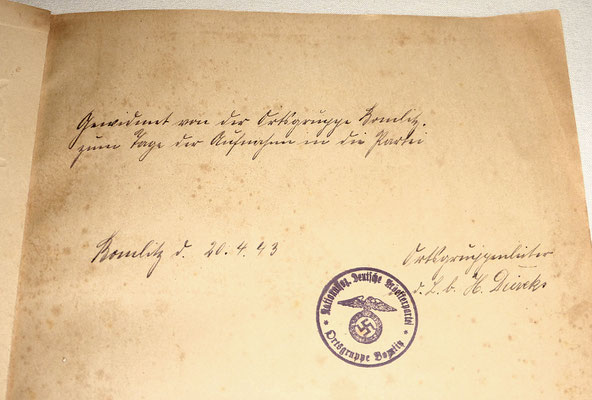 Gewidmet von der Ortsgruppe Bomlitz.
zum Tage der Aufnahme in die Partei
Bomlitz d. 20.4.43
Ortsgruppenleiter
d. L. b. H. Diercks
Nationalsoz. Deutsche Arbeiterpartei
* Ortsgruppe Bomlitz *